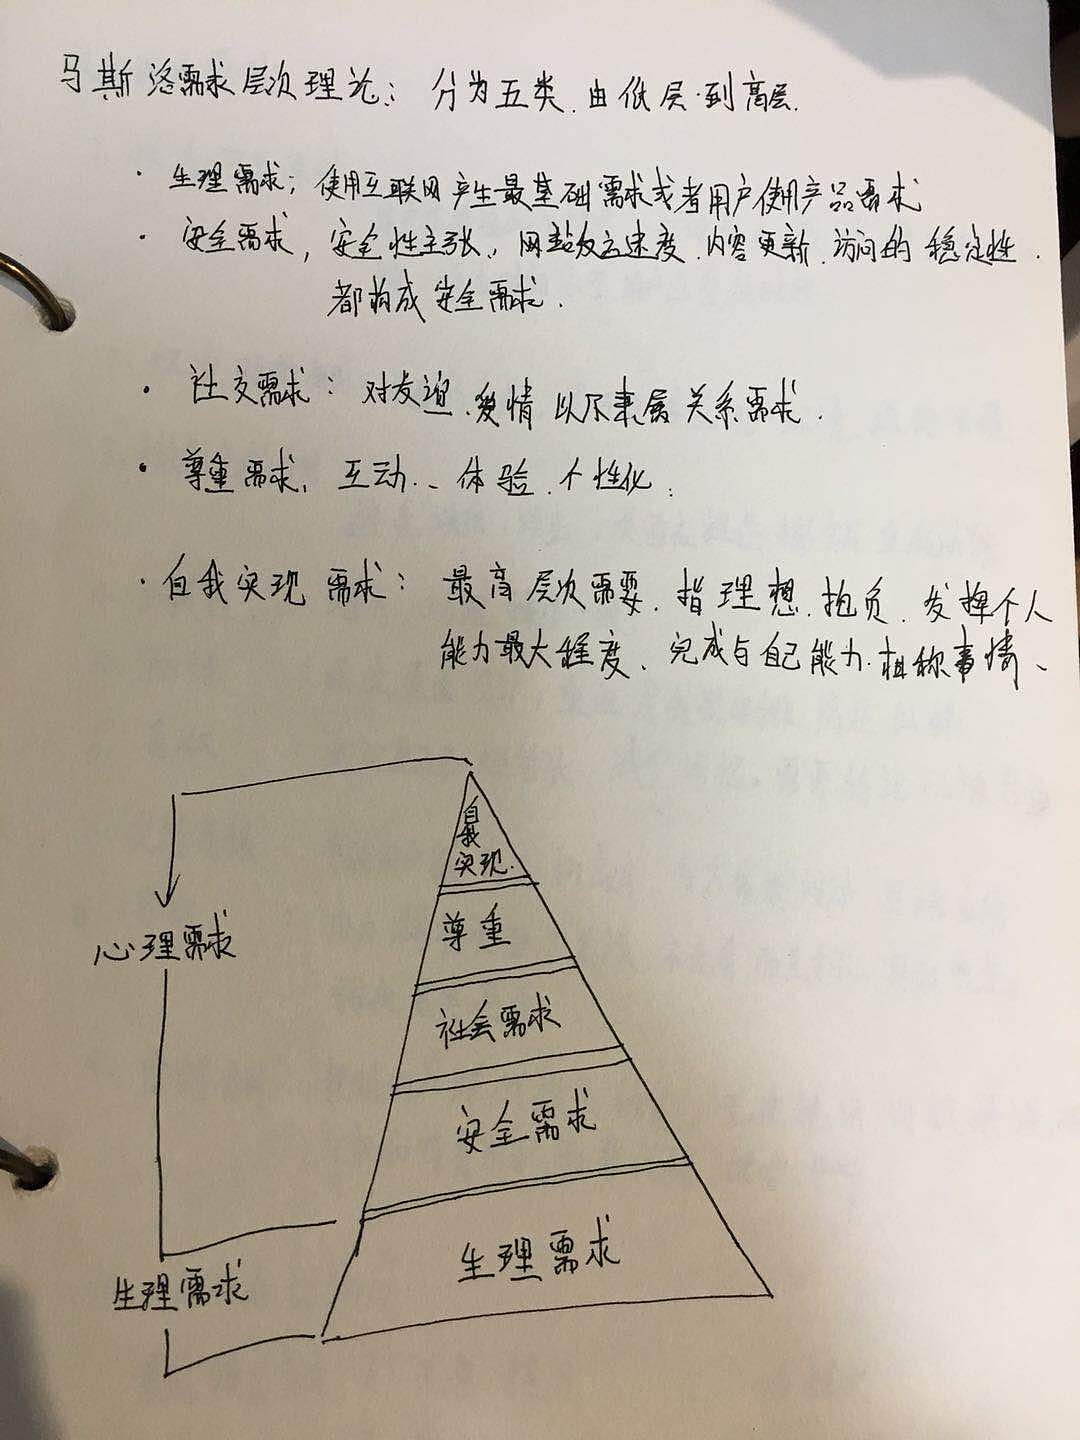 马斯洛需求层次理论：分为五类、由低层到高层.
· 生理需求；使用互联网产生最基础需求或者用户使用产品需求
· 安全需求，安全性主张，网站反应速度、内容更新、访问的稳定性、
都构成安全需求.
· 社交需求：对友谊、爱情 以及隶属关系需求.
· 尊重需求、互动、、体验、个性化；
· 自我实现需求：最高层次需要、指理想、抱负、发挥个人
能力最大程度、完成与自己能力相称事情、
自我
实现.
尊重
心理需求
社会需求
安全需求
生理需求
生理需求